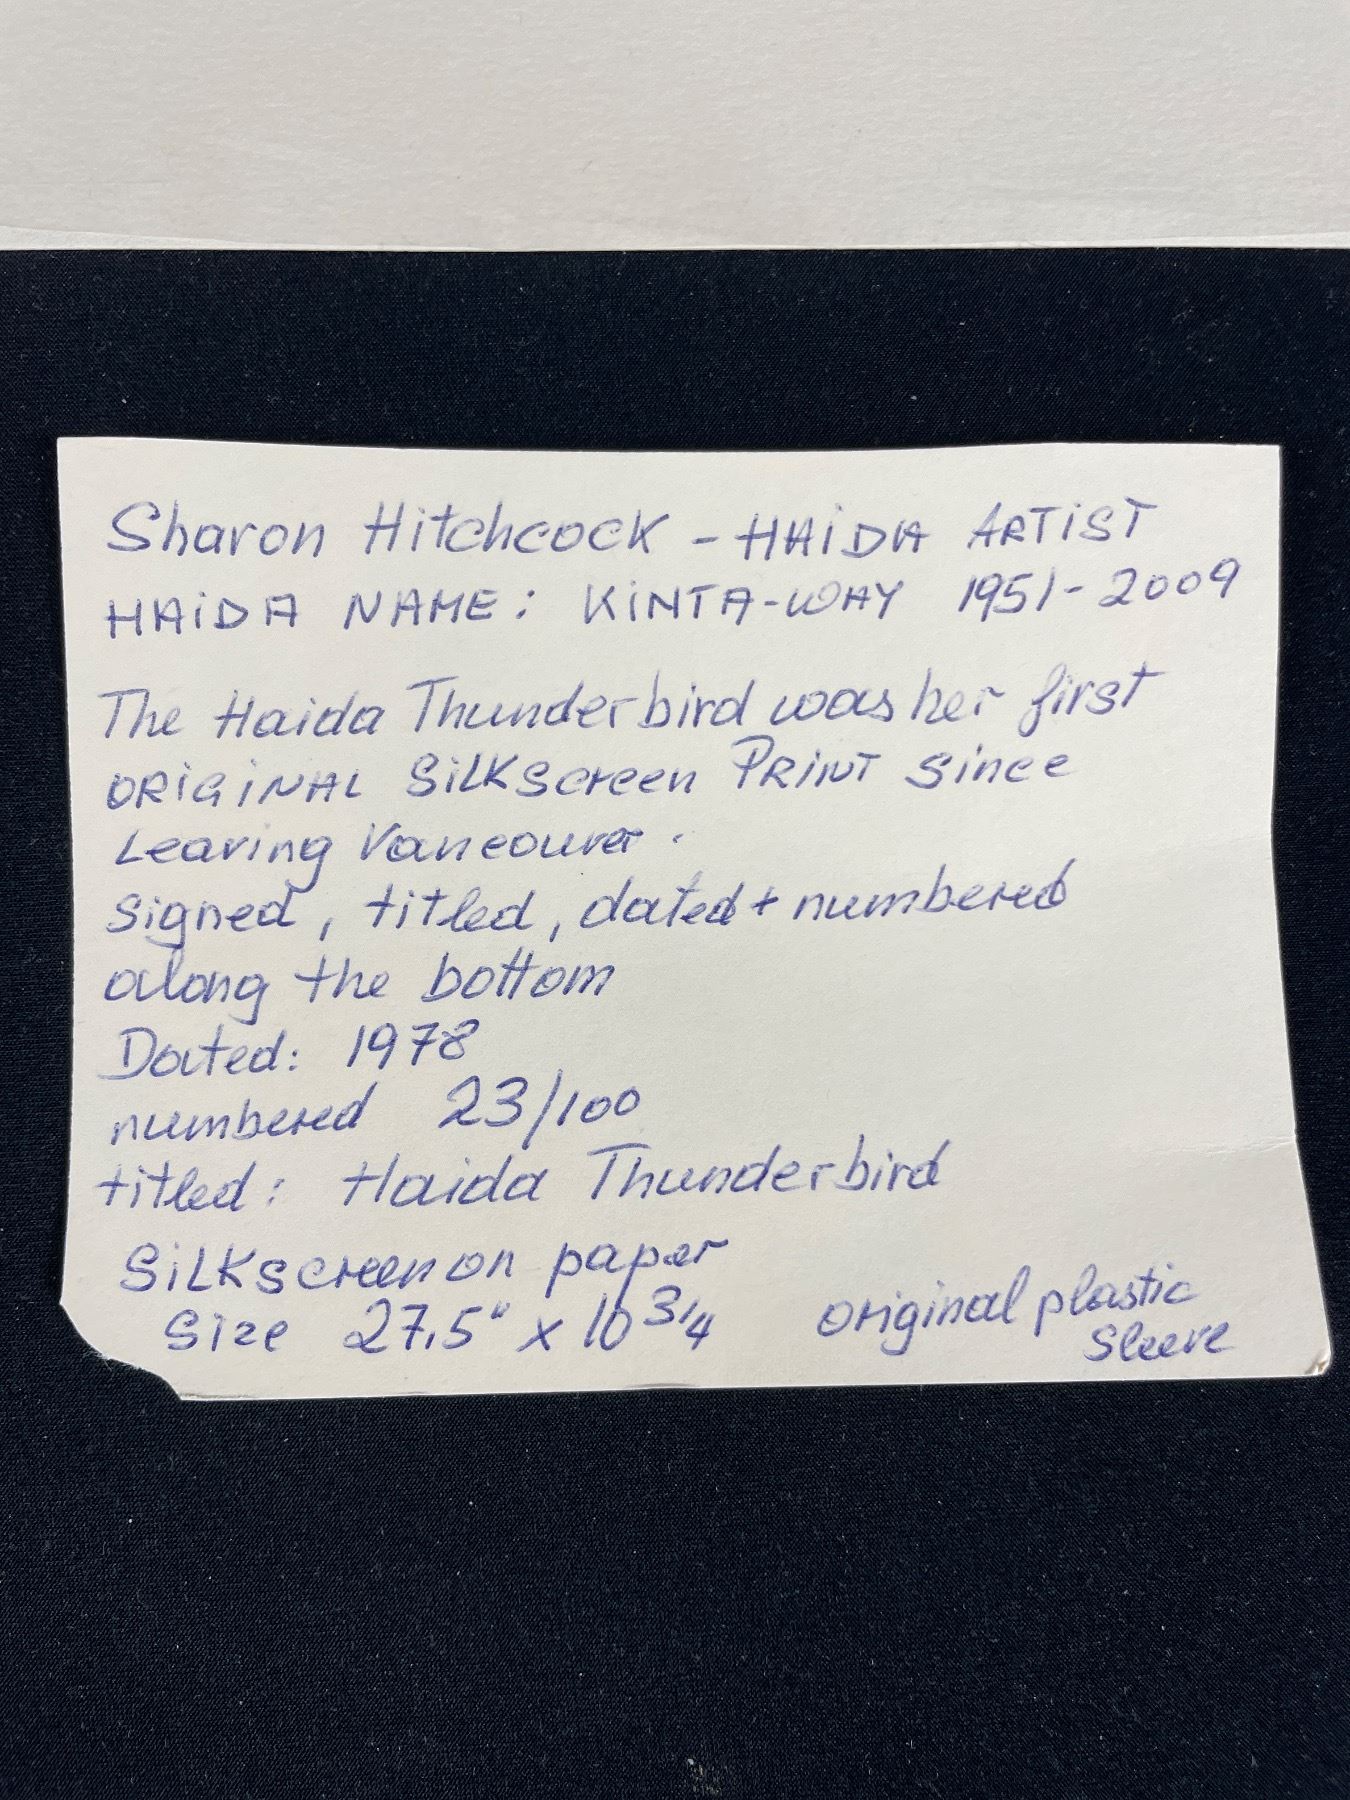 Sharon Hitchcock - HAiDA ARTiST
HAiDA NAME: KiNTA-WAY 1951-2009
The Haida Thunderbird was her first
ORiGiNAL SiLKscreen PRiNT since
Leaving Vancouver.
signed, titled, dated + numbered
along the bottom
Dated: 1978
numbered 23/100
titled: Haida Thunderbird
SiLKscreen on paper
Size 27.5" x 10 3/4 original plastic
sleeve